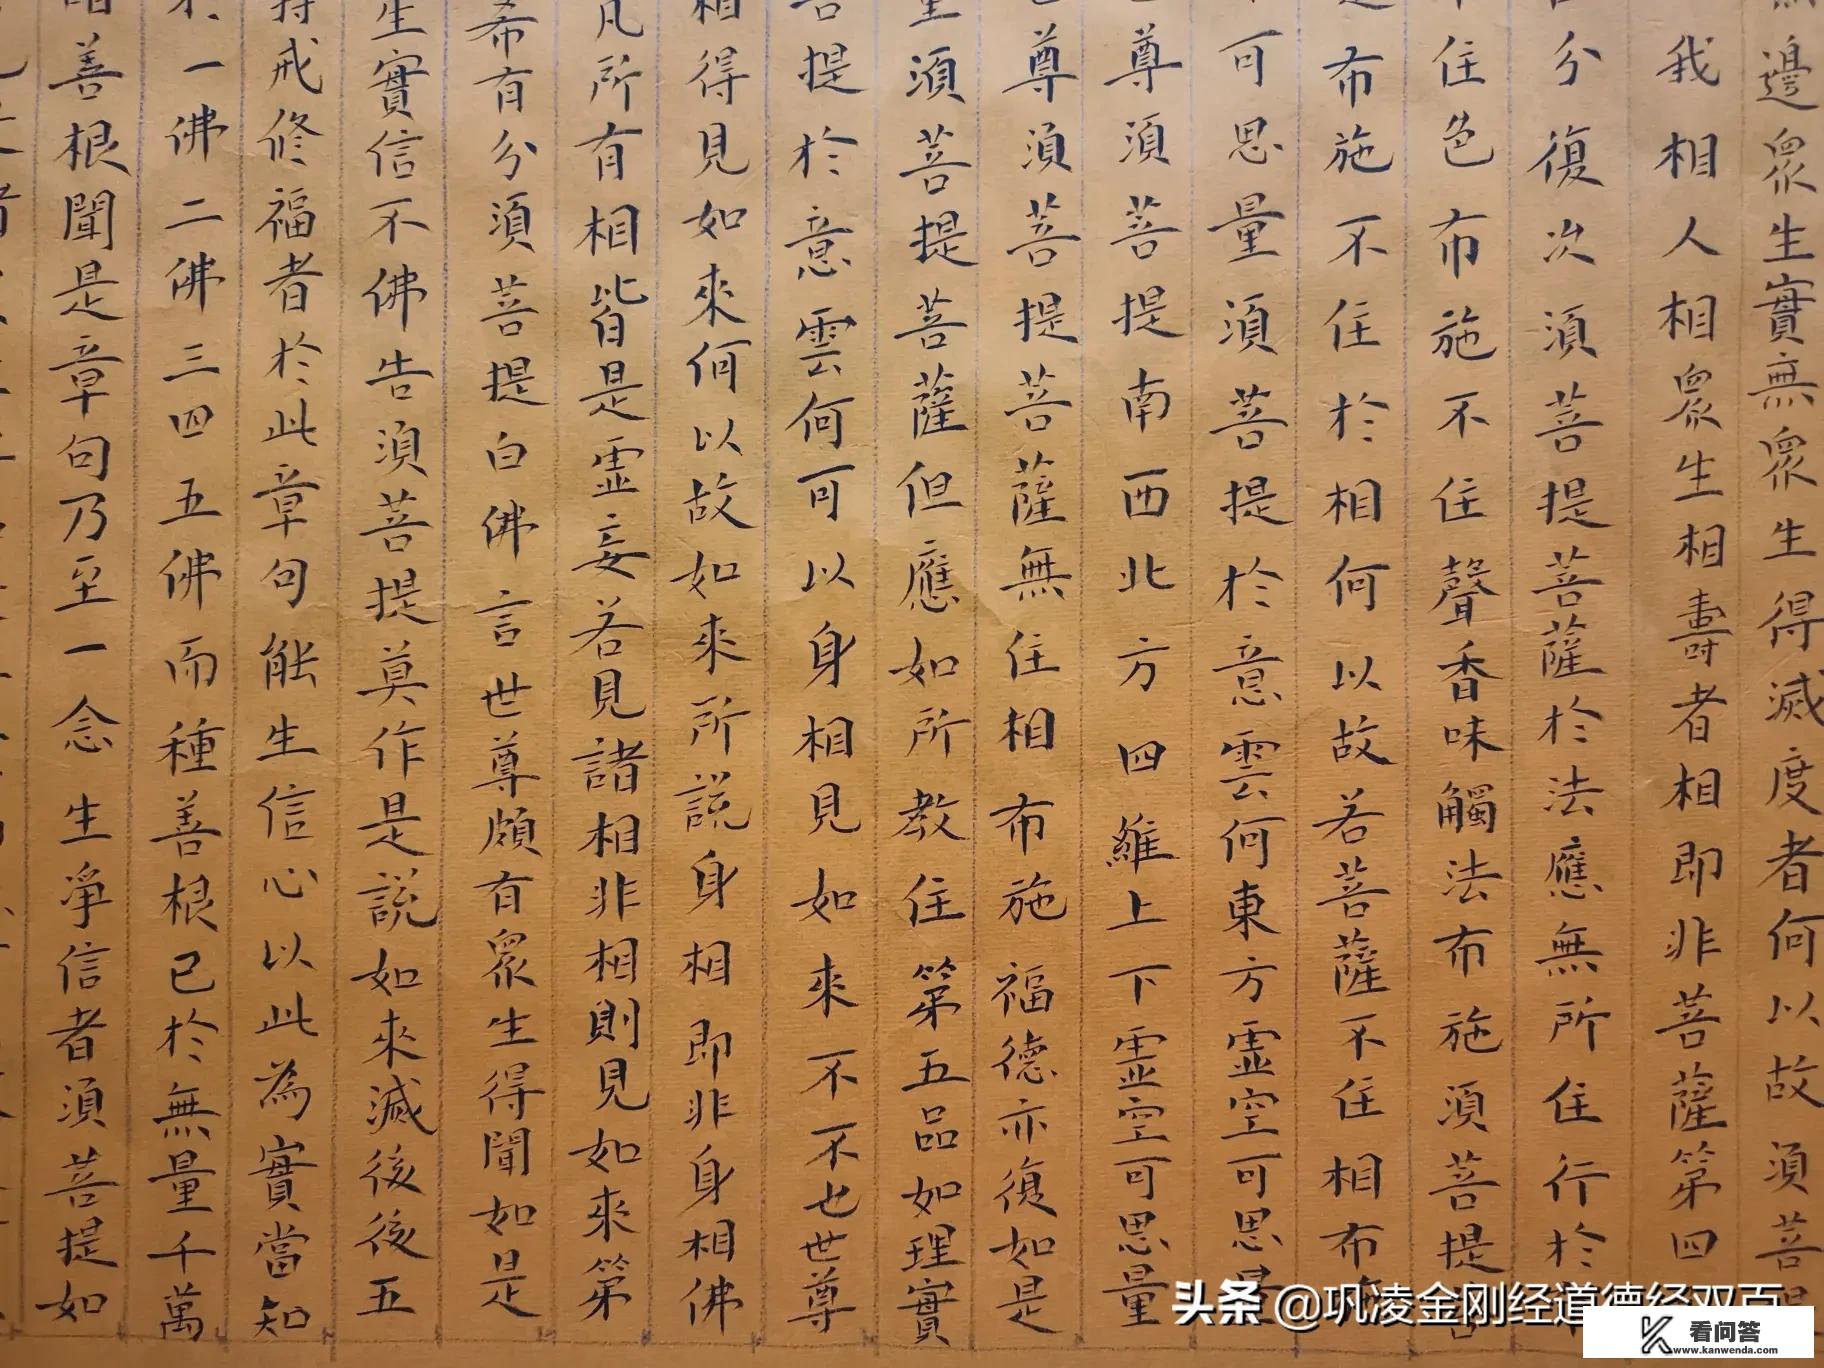 邊眾生實無眾生得滅度者何以故須菩
我相人相眾生相壽者相即非菩薩第四
分復次須菩提菩薩於法應無所住行於
住色布施不住聲香味觸法布施須菩提
布施不住於相何以故若菩薩不住相布
可思量須菩提於意雲何東方虛空可思量
尊須菩提南西北方四維上下虛空可思量
尊須菩提菩薩無住相布施福德亦復如是
量須菩提菩薩但應如所教住第五品如理實
菩提於意雲何可以身相見如來不不也世尊
相得見如來何以故如來所說身相即非身相佛
凡所有相皆是虛妄若見諸相非相則見如來第
希有分須菩提白佛言世尊頗有眾生得聞如是
生實信不佛告須菩提莫作是說如來滅後後五
持戒修福者於此章句能生信心以此為實當知
一佛二佛三四五佛而種善根已於無量千萬
善根聞是章句乃至一念生淨信者須菩提如
头条 @巩凌金刚经道德经双百
看问答
www.kanwenda.com